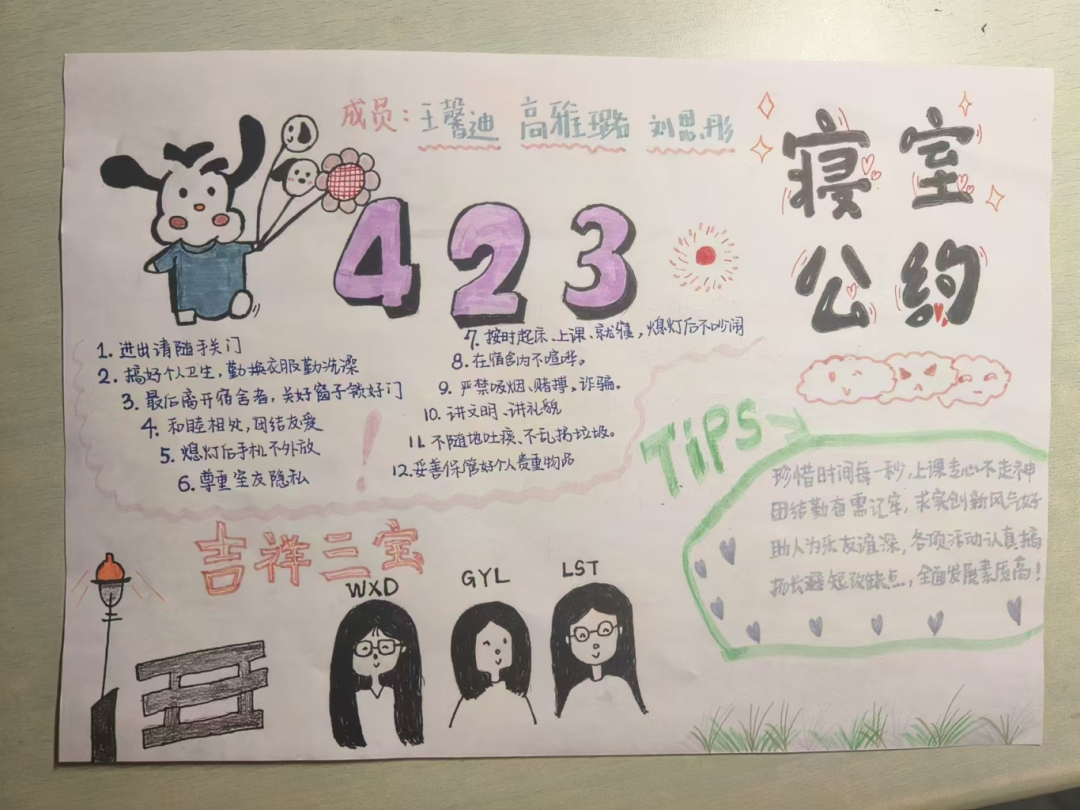 成员：王馨迪 高雅璐 刘思彤
寝室
公约
423
1. 进出请随手关门
2. 搞好个人卫生，勤换衣服勤洗澡
3. 最后离开宿舍者，关好窗子锁好门
4. 和睦相处，团结友爱
5. 熄灯后手机不外放
6. 尊重室友隐私
7. 按时起床、上课、就寝，熄灯后不吵闹
8. 在宿舍内不喧哗。
9. 严禁吸烟、赌搏，诈骗。
10. 讲文明、讲礼貌
11. 不随地吐痰、不乱扔垃圾。
12. 妥善保管好个人贵重物品
!
TiPS
珍惜时间每一秒，上课专心不走神
团结勤奋需记牢，求实创新风气好
助人为乐友谊深，各项活动认真搞
扬长避短改缺点，全面发展素质高！
吉祥三宝
WXD GYL LST